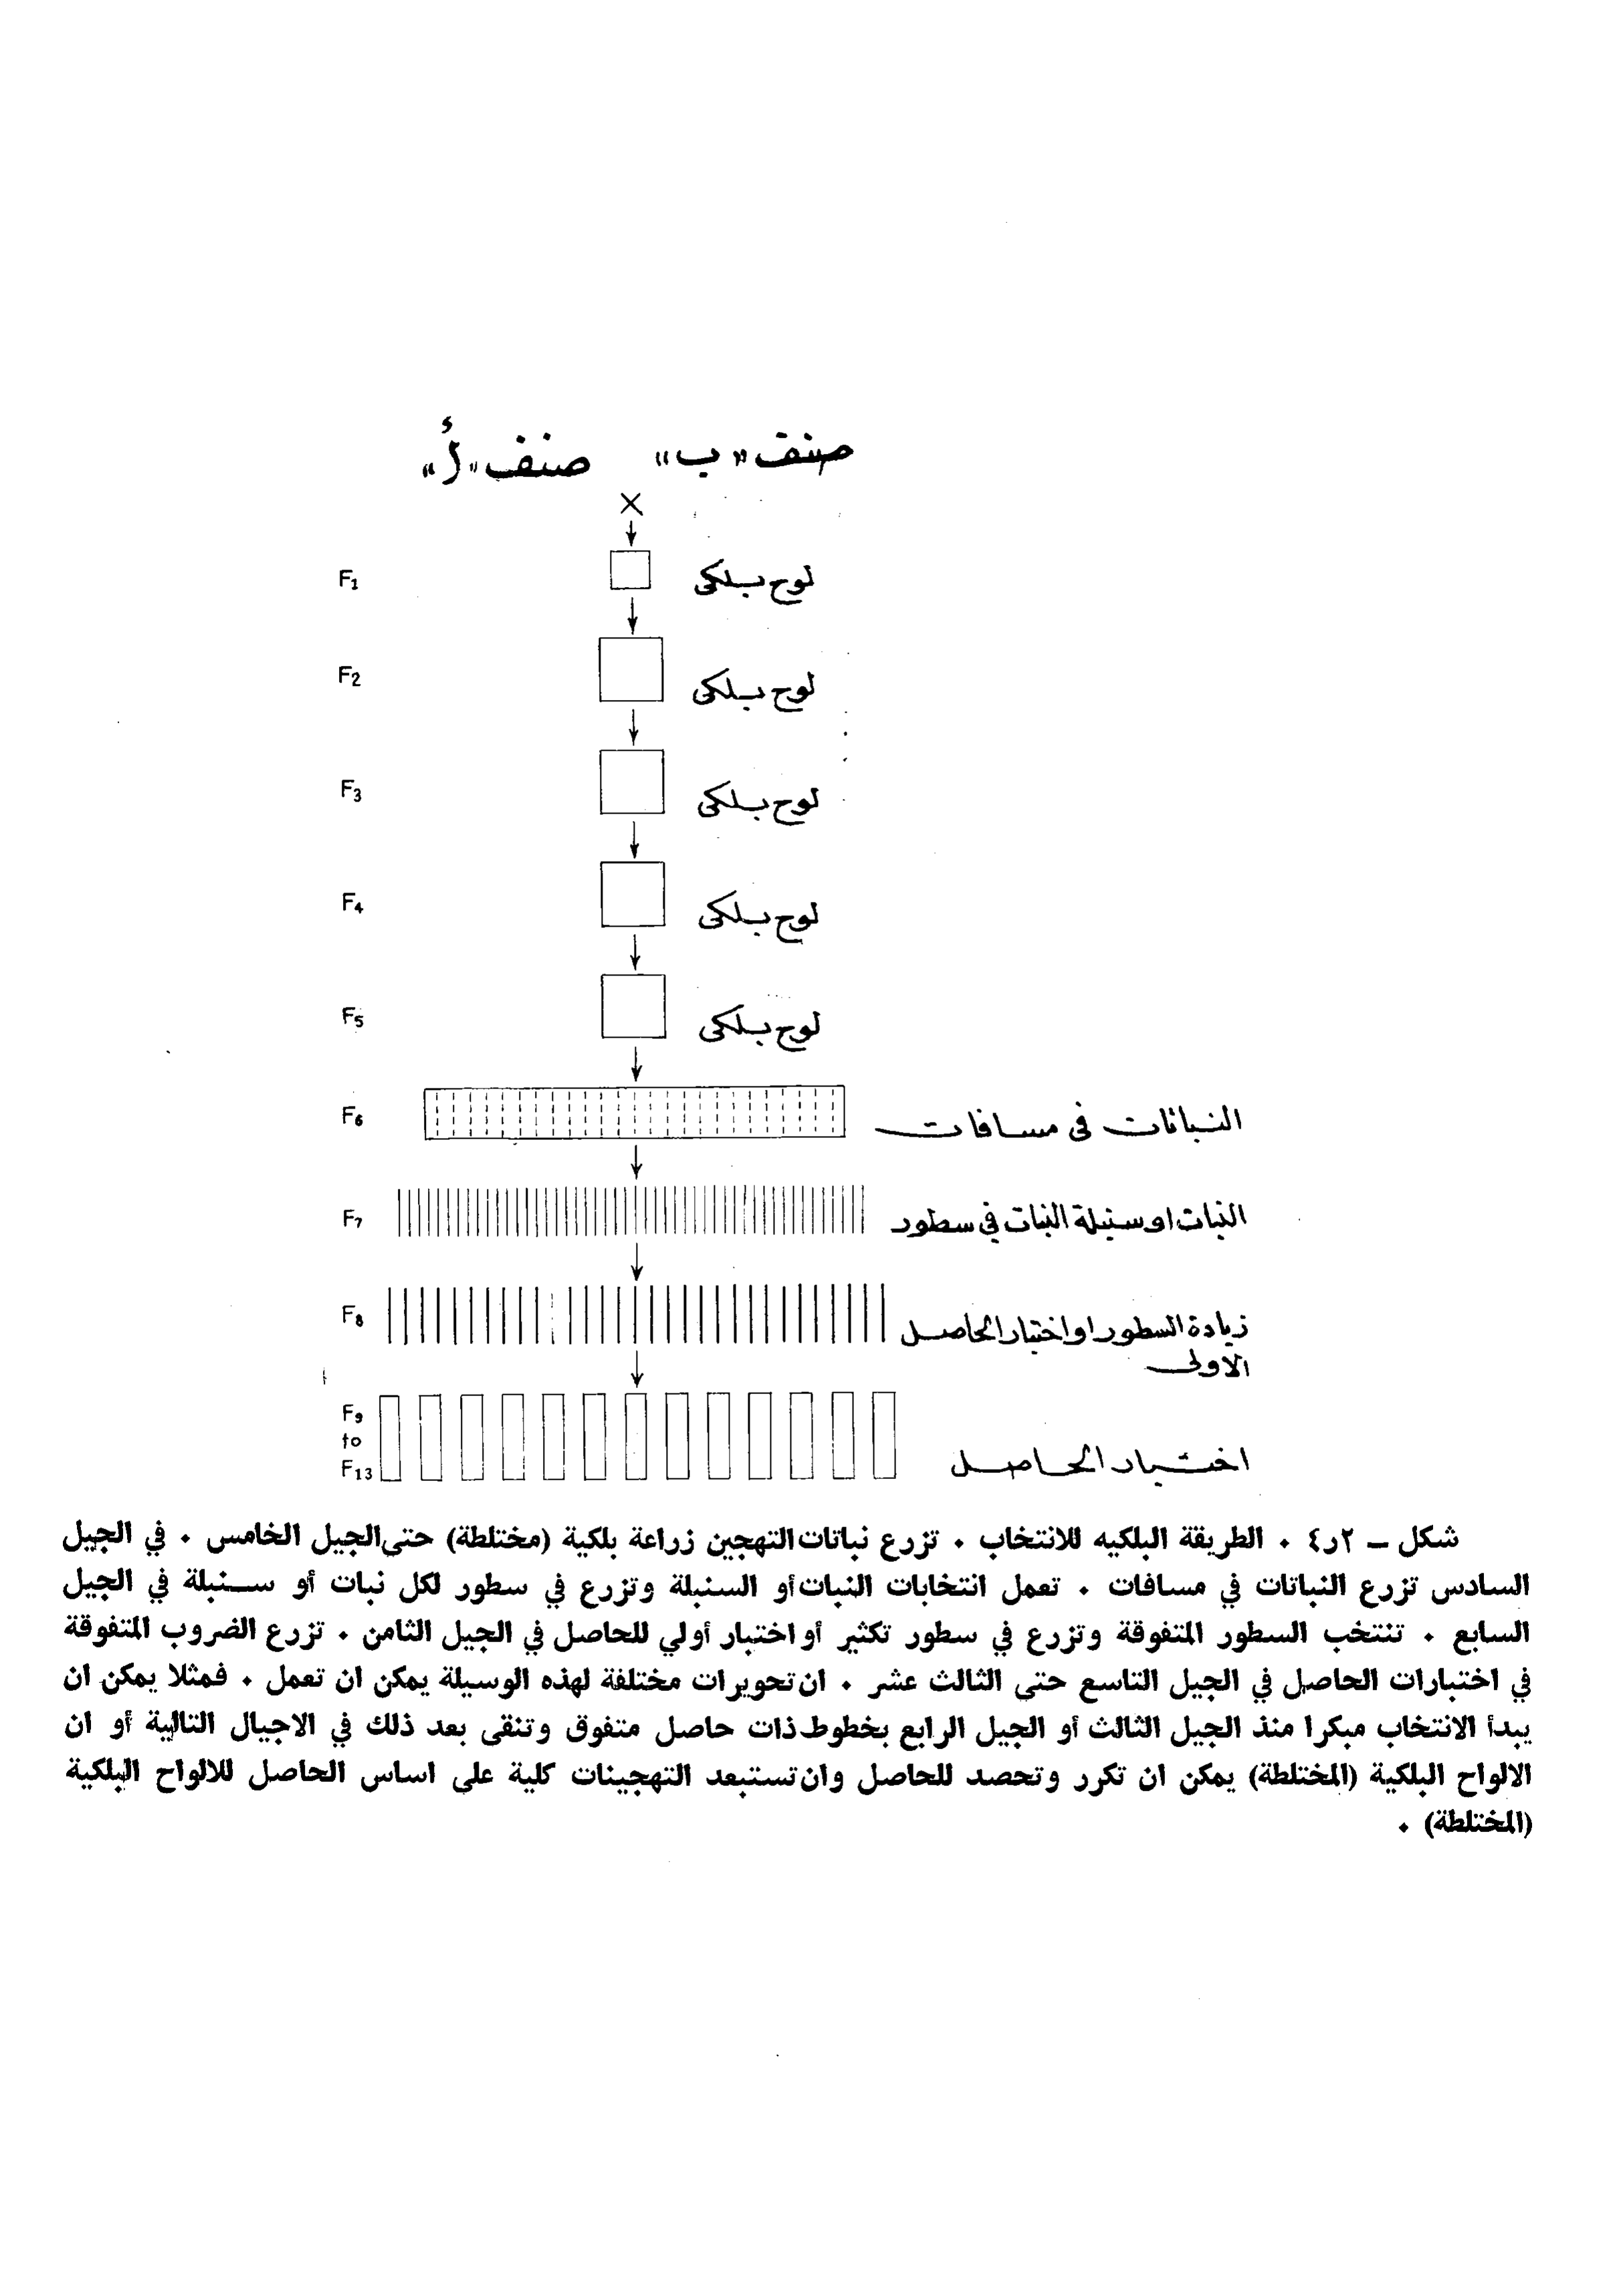 صنف «ب» صنف «أ»
×
لوح بلكى F1
لوح بلكى F2
لوح بلكى F3
لوح بلكى F4
لوح بلكى F5
النباتات فى مسافات F6
النبات او سنبلة النبات في سطور F7
زيادة السطور او اختبار الحاصل F8
الاولى
F9
to
اختبار الحاصل F13
شكل – ٢ر٤ . الطريقة البلكيه للانتخاب . تزرع نباتات التهجين زراعة بلكية (مختلطة) حتى الجيل الخامس . في الجيل
السادس تزرع النباتات في مسافات . تعمل انتخابات النبات أو السنبلة وتزرع في سطور لكل نبات أو سنبلة في الجيل
السابع . تنتخب السطور المتفوقة وتزرع في سطور تكثير أو اختبار أولي للحاصل في الجيل الثامن . تزرع الضروب المتفوقة
في اختبارات الحاصل في الجيل التاسع حتى الثالث عشر . ان تحويرات مختلفة لهذه الوسيلة يمكن ان تعمل . فمثلا يمكن ان
يبدأ الانتخاب مبكرا منذ الجيل الثالث أو الجيل الرابع بخطوط ذات حاصل متفوق وتنقى بعد ذلك في الاجيال التالية أو ان
الالواح البلكية (المختلطة) يمكن ان تكرر وتحصد للحاصل وان تستبعد التهجينات كلية على اساس الحاصل للالواح البلكية
(المختلطة) .